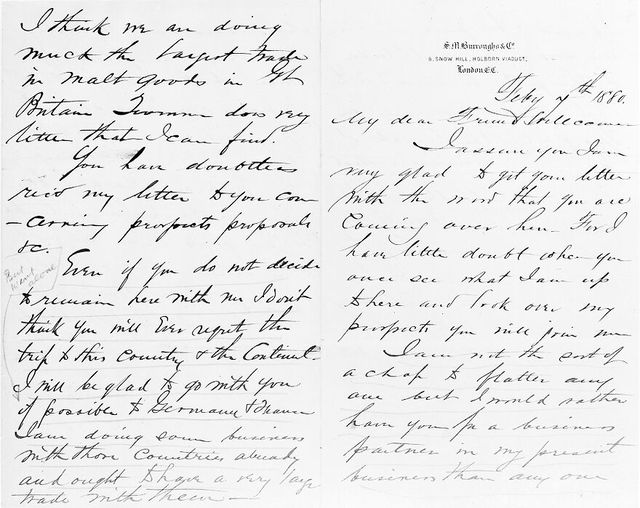 S. M. Burroughs & Co
8, SNOW HILL, HOLBORN VIADUCT,
London E.C.
Feby 7th 1880.
My dear Friend Wellcome
I assure you I am
very glad to get your letter
with the word that you are
Coming over here. For I
have little doubt when you
once see what I am up
to here and look over my
prospects you will join me
I am not the sort of
a chap to flatter any
one but I would rather
have you for a business
partner in my present
business than any one
I think we are doing
much the largest trade
in malt goods in Gt
Britain does very
little that I can find.
You have doubtless
recd my letter to you con
-cerning prospects proposals
&c.
Even if you do not decide
to remain here with me I don't
think you will Ever regret the
trip to this Country & the Continent
I will be glad to go with you
if possible to Germany & France
I am doing some business
with those Countries already
and ought to have a very large
trade with them —